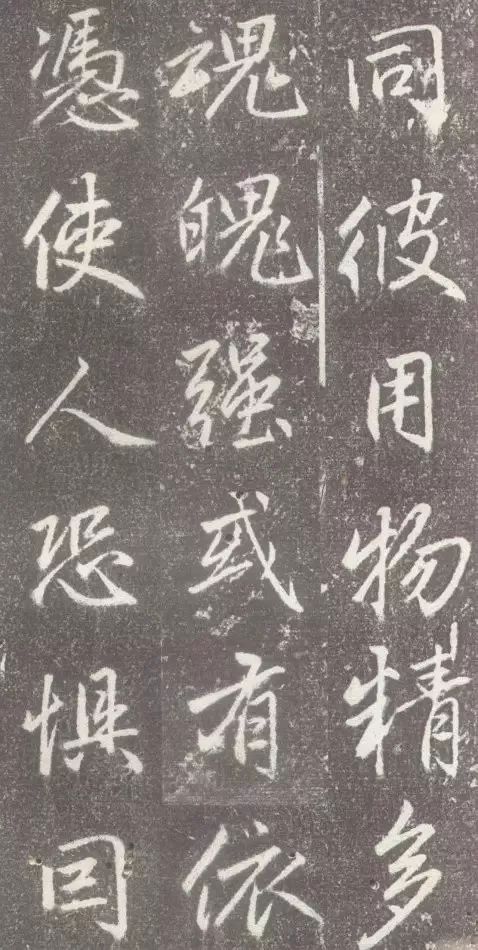 同彼用物精多
魂魄强或有依
憑使人恐惧囙